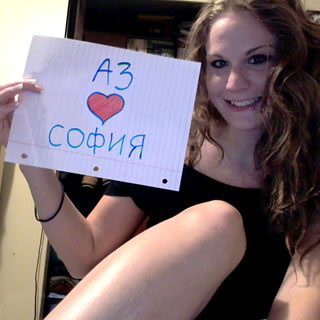 АЗ
СОФИЯ